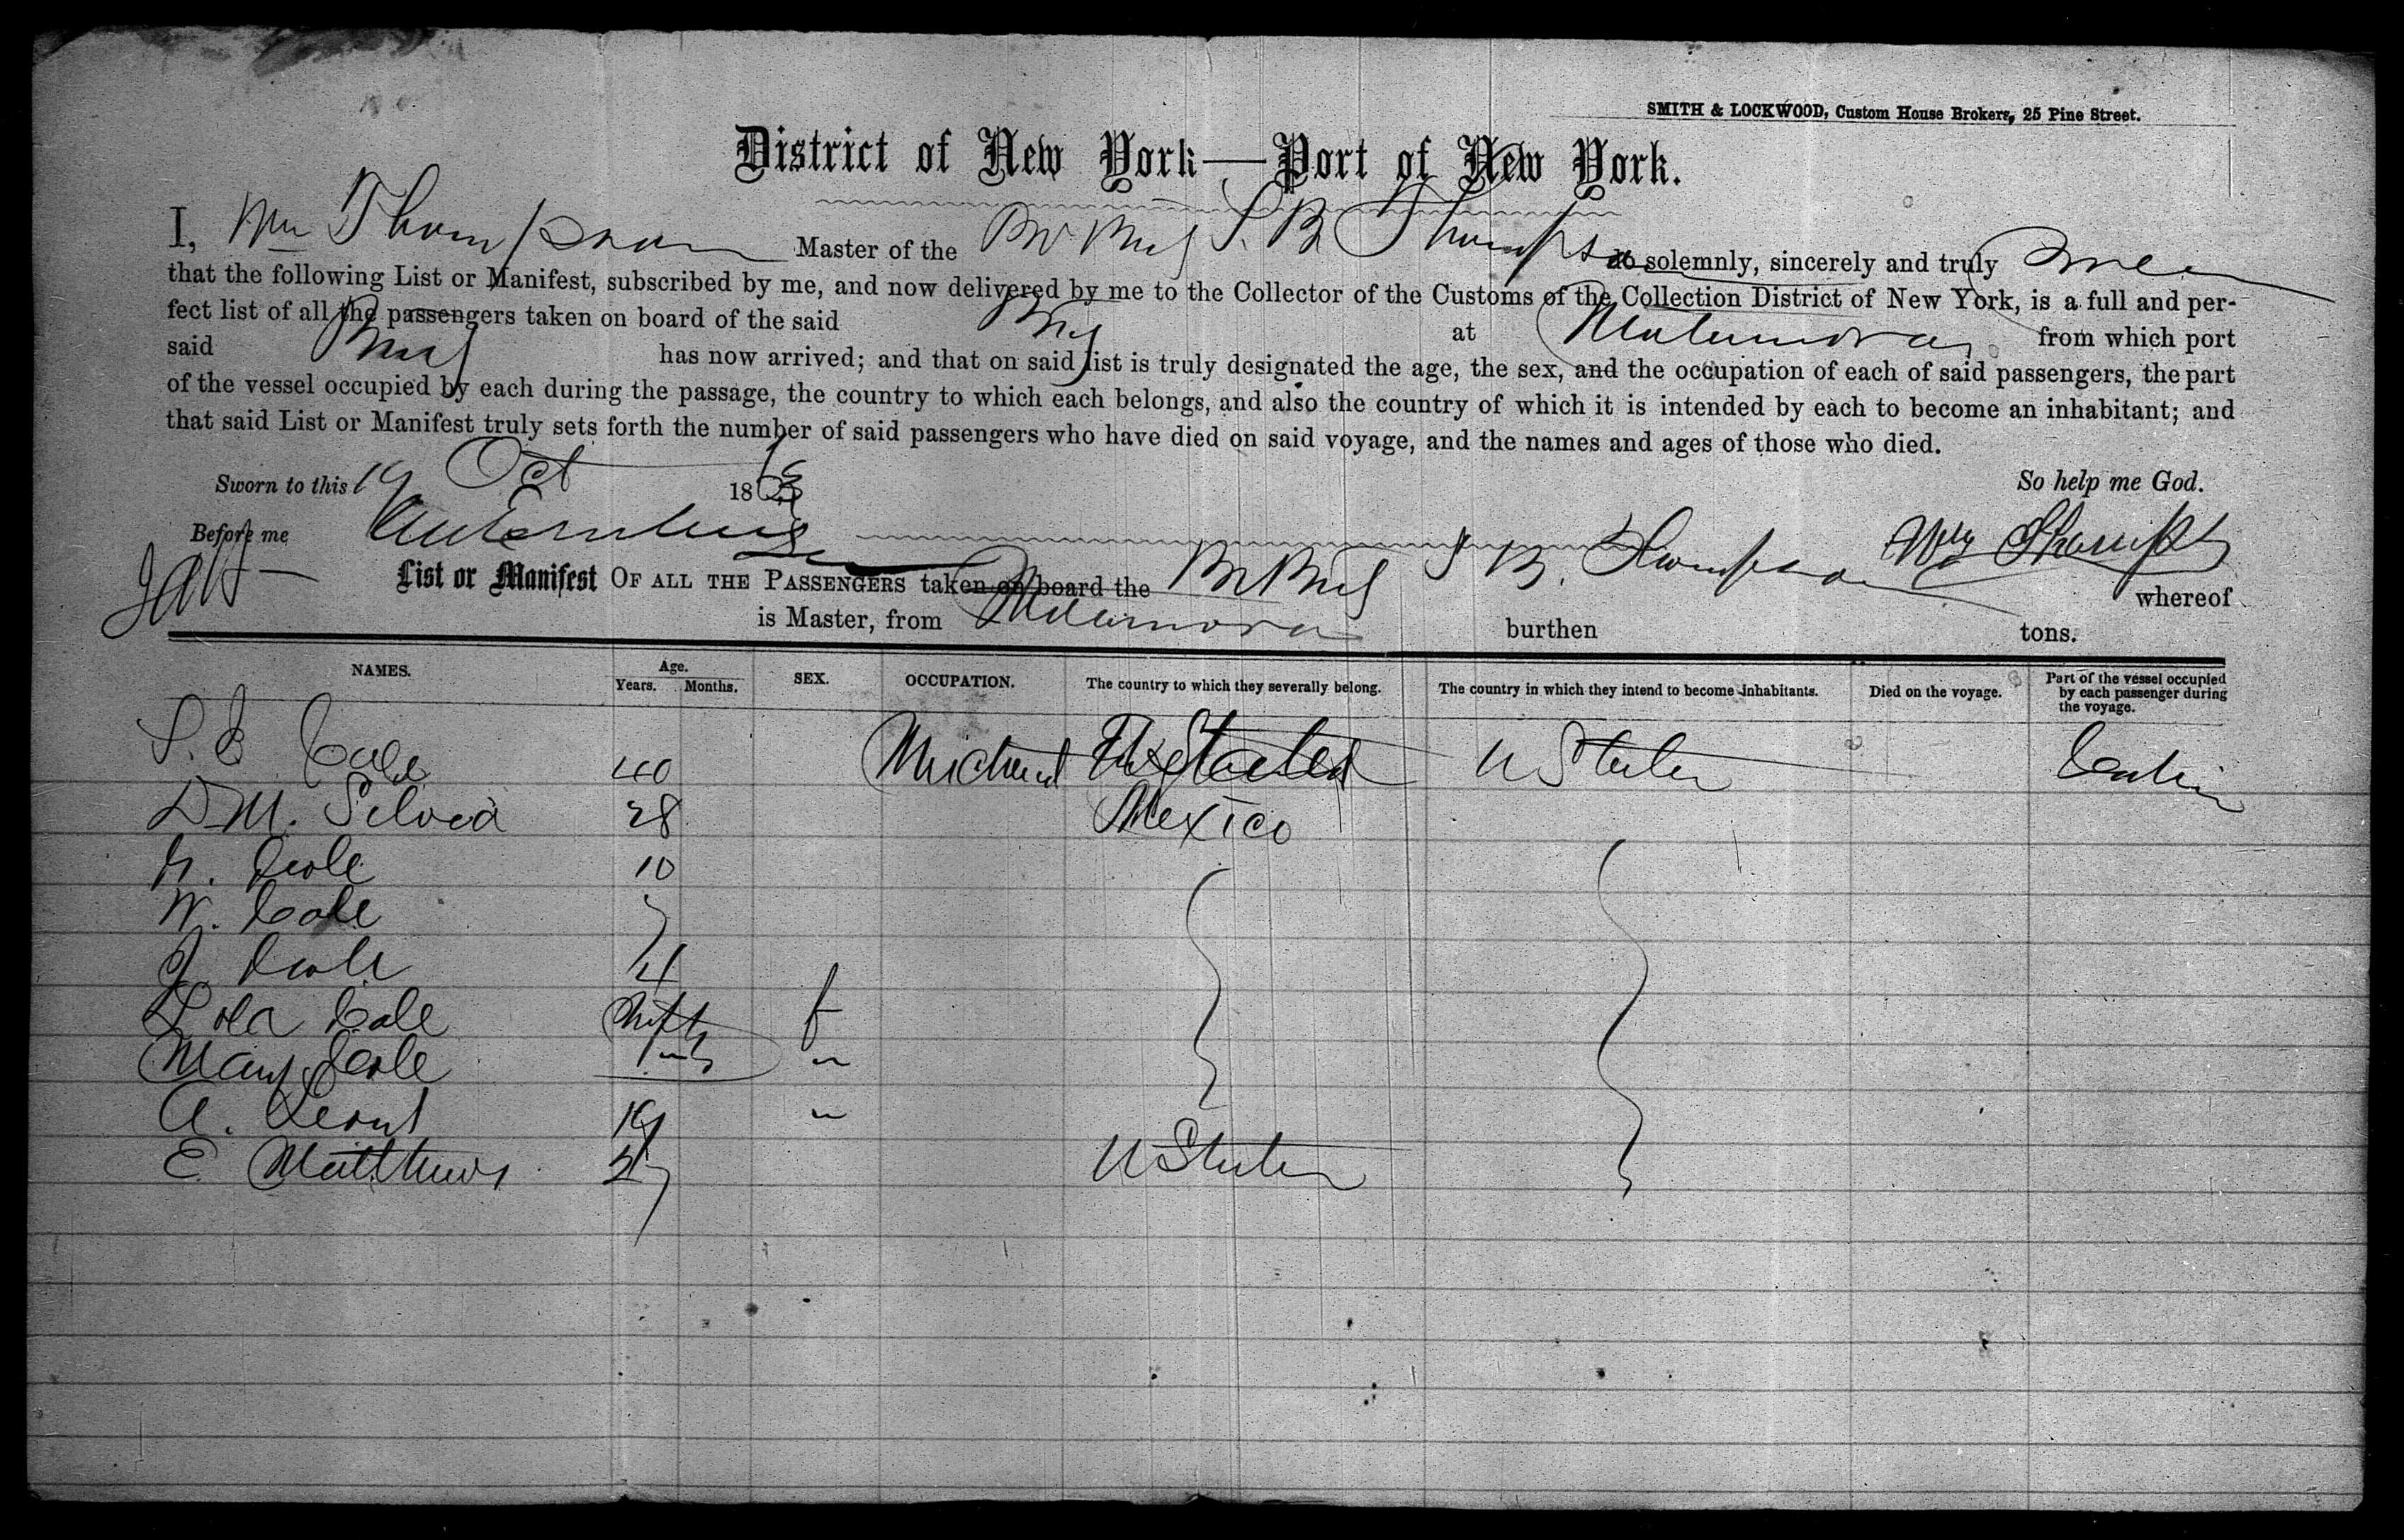 SMITH & LOCKWOOD, Custom House Brokers, 25 Pine Street.
District of New York—Port of New York.
I, Wm Thompson Master of the Br Brig S. B. Thompson do solemnly, sincerely and truly swear
that the following List or Manifest, subscribed by me, and now delivered by me to the Collector of the Customs of the Collection District of New York, is a full and per-
fect list of all the passengers taken on board of the said Brig at Matamoras from which port
said Brig has now arrived; and that on said list is truly designated the age, the sex, and the occupation of each of said passengers, the part
of the vessel occupied by each during the passage, the country to which each belongs, and also the country of which it is intended by each to become an inhabitant; and
that said List or Manifest truly sets forth the number of said passengers who have died on said voyage, and the names and ages of those who died.
Sworn to this 19 Oct 186 So help me God.
Before me Wm Thompson
List or Manifest OF ALL THE PASSENGERS taken on board the Br Brig S B. Thompson whereof
is Master, from Matamoras burthen tons.
NAMES. Age. Years. Months. SEX. OCCUPATION. The country to which they severally belong. The country in which they intend to become inhabitants. Died on the voyage. Part of the vessel occupied by each passenger during the voyage.
S. B Cole 40 Merchant U States Cabin
D M. Silvia 28 Mexico
N. Cole 10
W. Cole 7
J Cole 4
Lola Cole f
Mary Cole "
A. 19 "
E Matthews 27 U States